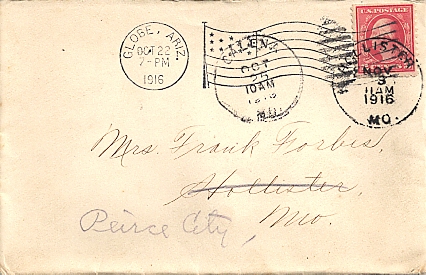 GLOBE, ARIZ.
OCT 22
7-PM
1916
GALENA
OCT
25
10AM
1916
MO.
U.S. POSTAGE
HOLLISTER
NOV
3
11AM
1916
MO.
Mrs. Frank Forbes,
Hollister,
Mo.
Peirce City,